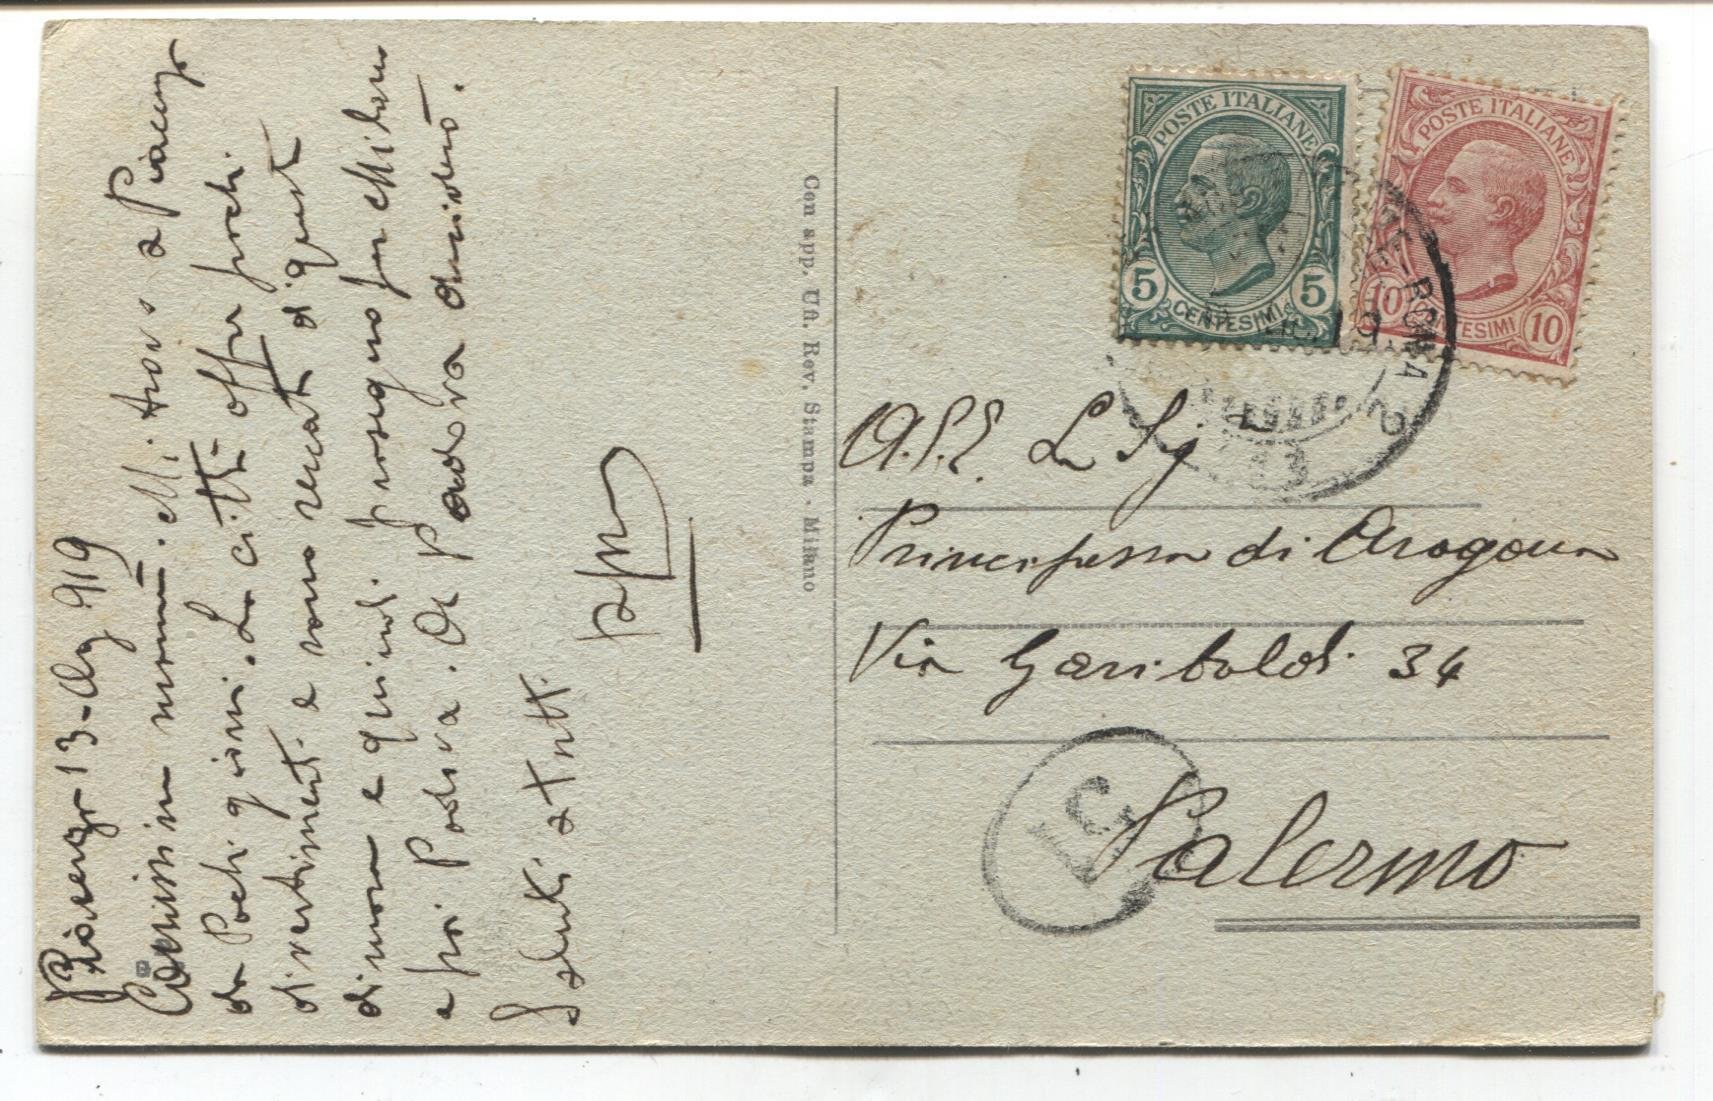 Piacenza 13-Ag 919
Carissima mammà. Mi trovo a Piacenza
da Pochi giorni. La città offre pochi
divertimenti e sono seccati di questa
dimora e quindi proseguo per Milano
e poi Padova. Da Padova scriverò.
Saluti a tutti.
Con app. Uff. Rev. Stampa - Milano
POSTE ITALIANE
5 5
CENTESIMI
POSTE ITALIANE
10 10
CENTESIMI
ROMA
19
2
A.S.E. La Sig
Principessa di Aragona
Via Garibaldi 34
Palermo